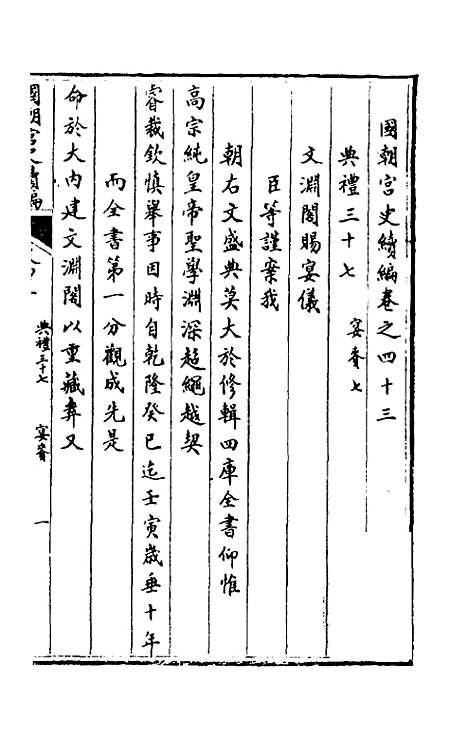 國朝宮史續編卷之四十三
典禮三十七 宴賚七
文淵閣賜宴儀
臣等謹案我
朝右文盛典莫大於修輯四庫全書仰惟
高宗純皇帝聖學淵深超繩越契
睿裁欽慎舉事因時自乾隆癸巳迄壬寅歲垂十年
而全書第一分觀成先是
命於大内建文淵閣以重藏弆又
國朝宮史續編
典禮三十七 宴賚 一